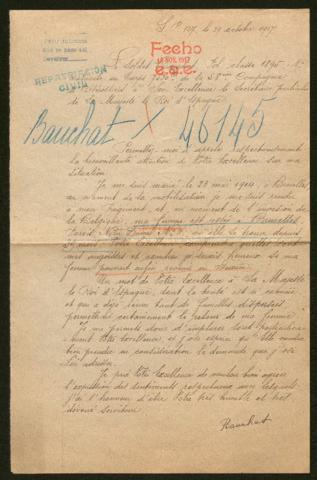 S.P. 127, le 29 octobre 1917
Fecho
14 NOV. 1917
REPATRIACION
CIVIL
Le Soldat classe 1895
de la 58me Compagnie
à Son Excellence le Secrétaire particulier
de Sa Majesté le Roi d'Espagne
Bauchat × 46145
Permettez moi d'appeler respectueusement
la bienveillante attention de Votre Excellence sur ma
situation.
Je me suis marié le 23 mai 1914, à Bruxelles
au moment de la mobilisation je me suis rendu
à mon Régiment, et au moment de l'invasion de
la Belgique, ma femme est restée à Bruxelles
où elle se trouve depuis
Votre Excellence comprendra quelles sont
mes angoisses et combien je serais heureux si ma
femme pouvait enfin revenir en France.
Un mot de Votre Excellence à Sa Majesté
le Roi d'Espagne, dont la bonté est si connue,
et qui a déjà réuni tant de familles dispersées
permettra certainement le retour de ma femme.
Je me permets donc d'implorer
Votre Excellence, et j'ose espérer qu'Elle voudra
bien prendre en considération la demande que j'ose
lui adresser.
Je prie Votre Excellence de vouloir bien agréer
l'expression des sentiments respectueux avec lesquels
j'ai l'honneur d'être Votre très humble et très
dévoué serviteur
Bauchat